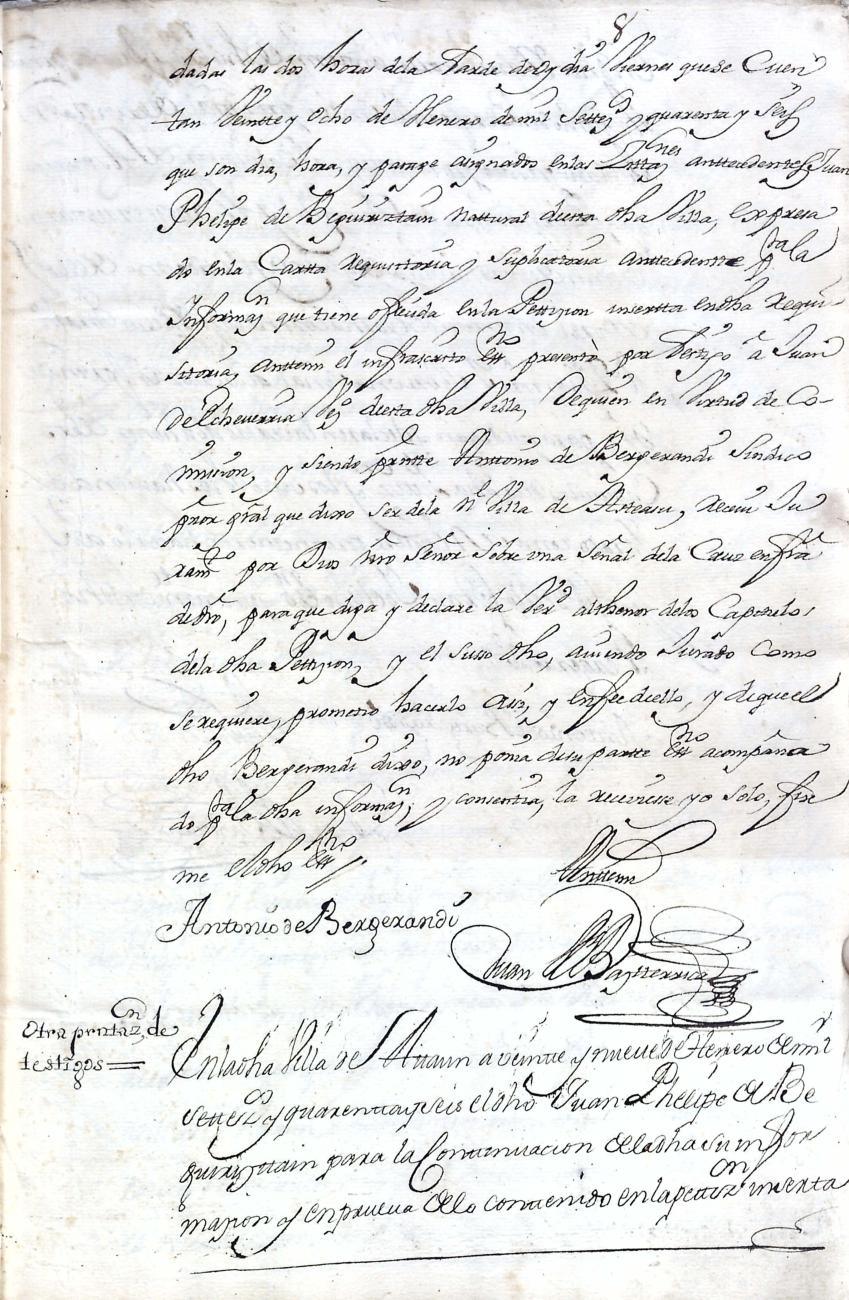 8
dadas las dos horas dela tarde de oy dia Viernes quese Cuen
tan Veintte y Ocho de Henero de mil Settez.os y quarenta y seis
que son dia, hora, y parage asignados en las Zittaz.nes anttecedentes Juan
Phelipe de Beguiriztain Nattural de esta dha Villa, Expresa
do enla Cartta requisitoria y Suplicatoria anttecedentte p.ª la
Informaz.n que tiene ofrezida en la Pettizion insertta en dha requi
sitoria, anttemi el infrascripto Ess.no presentò por testigo a Juan
de Echeverria Vez.o de esta dha Villa, de quien en Virtud de Co-
mision, y siendo presntte Anttonio de Bergerandi Sindico
Pror gral que dixo ser dela N. Villa de Asteasu, recivi Ju
ram.to por Dios nro Señor Sobre una Señal dela Cruz en fra
de dro, para que diga y declare la Ver.d al thenor delos Capitulos
dela dha Pettizion, y el Suso dho, aviendo Jurado Como
se requiere, prometio hacerlo Asi, y en fee de ello, y de que el
dho Bergerandi dixo, no ponia de su partte Ess.no acompaña
do p.ª la dha informaz.n, y consentia, la reciviese yo solo, fir
me el dho Ess.no
Anttemi
Antonio de Bergerandi
Juan Bapt
Otra prntaz.on de
testigos =
En la dha Villa de a veinte y nueve de Henero de mil
settez.os y quarenta y seis el dho Juan Phelipe de Be
guiriztain para la Continuacion de la dha su infor
mazion y en prueva de lo contenido en la petiz.on inserta